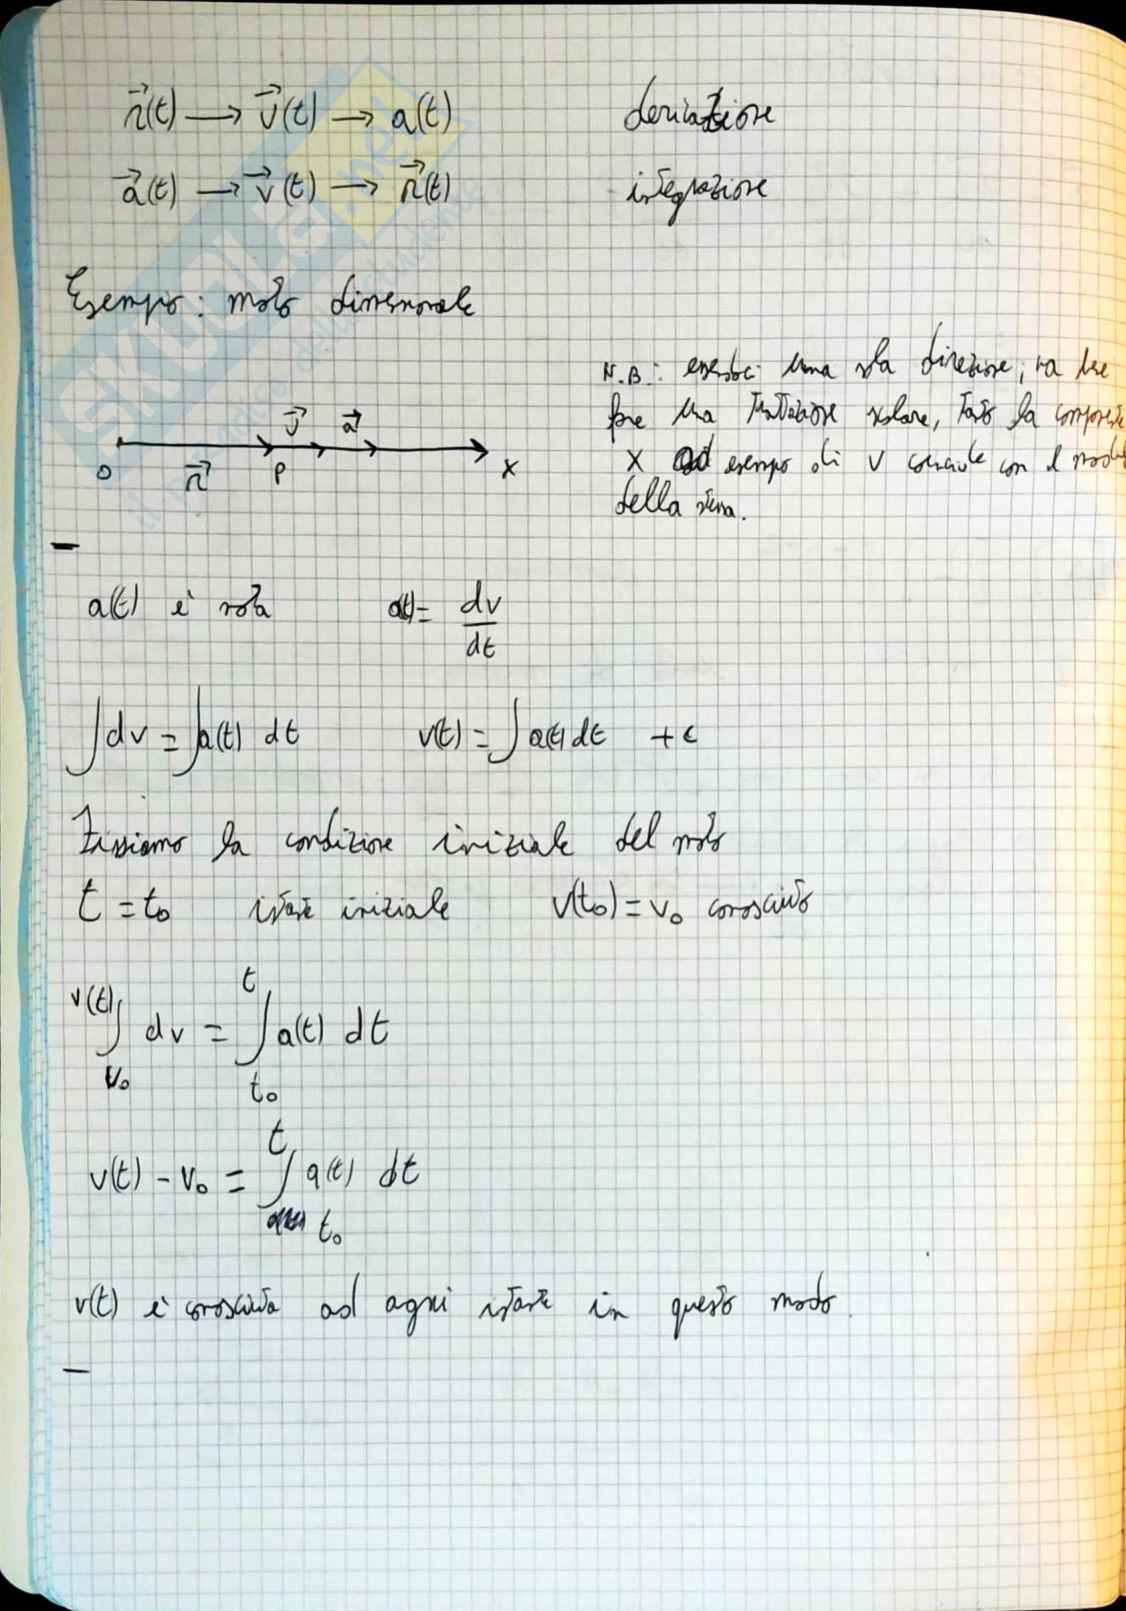 r⃗(t) → v⃗(t) → a(t) derivazione
a⃗(t) → v⃗(t) → r⃗(t) integrazione
Esempio: moto dimensionale
v⃗ a⃗
O r⃗ P x
N.B.: essendoci una sola direzione, va bene
fare una trattazione scalare, tanto la componente
x ad esempio di v coincide con il modulo
della stessa.
a(t) è nota a(t) = dv/dt
∫dv = ∫a(t) dt v(t) = ∫a(t) dt + c
Fissiamo la condizione iniziale del moto
t = t₀ istante iniziale v(t₀) = v₀ conosciuto
∫_{v₀}^{v(t)} dv = ∫_{t₀}^{t} a(t) dt
v(t) - v₀ = ∫_{t₀}^{t} a(t) dt
v(t) è conosciuta ad ogni istante in questo modo.
SKUOLA.net